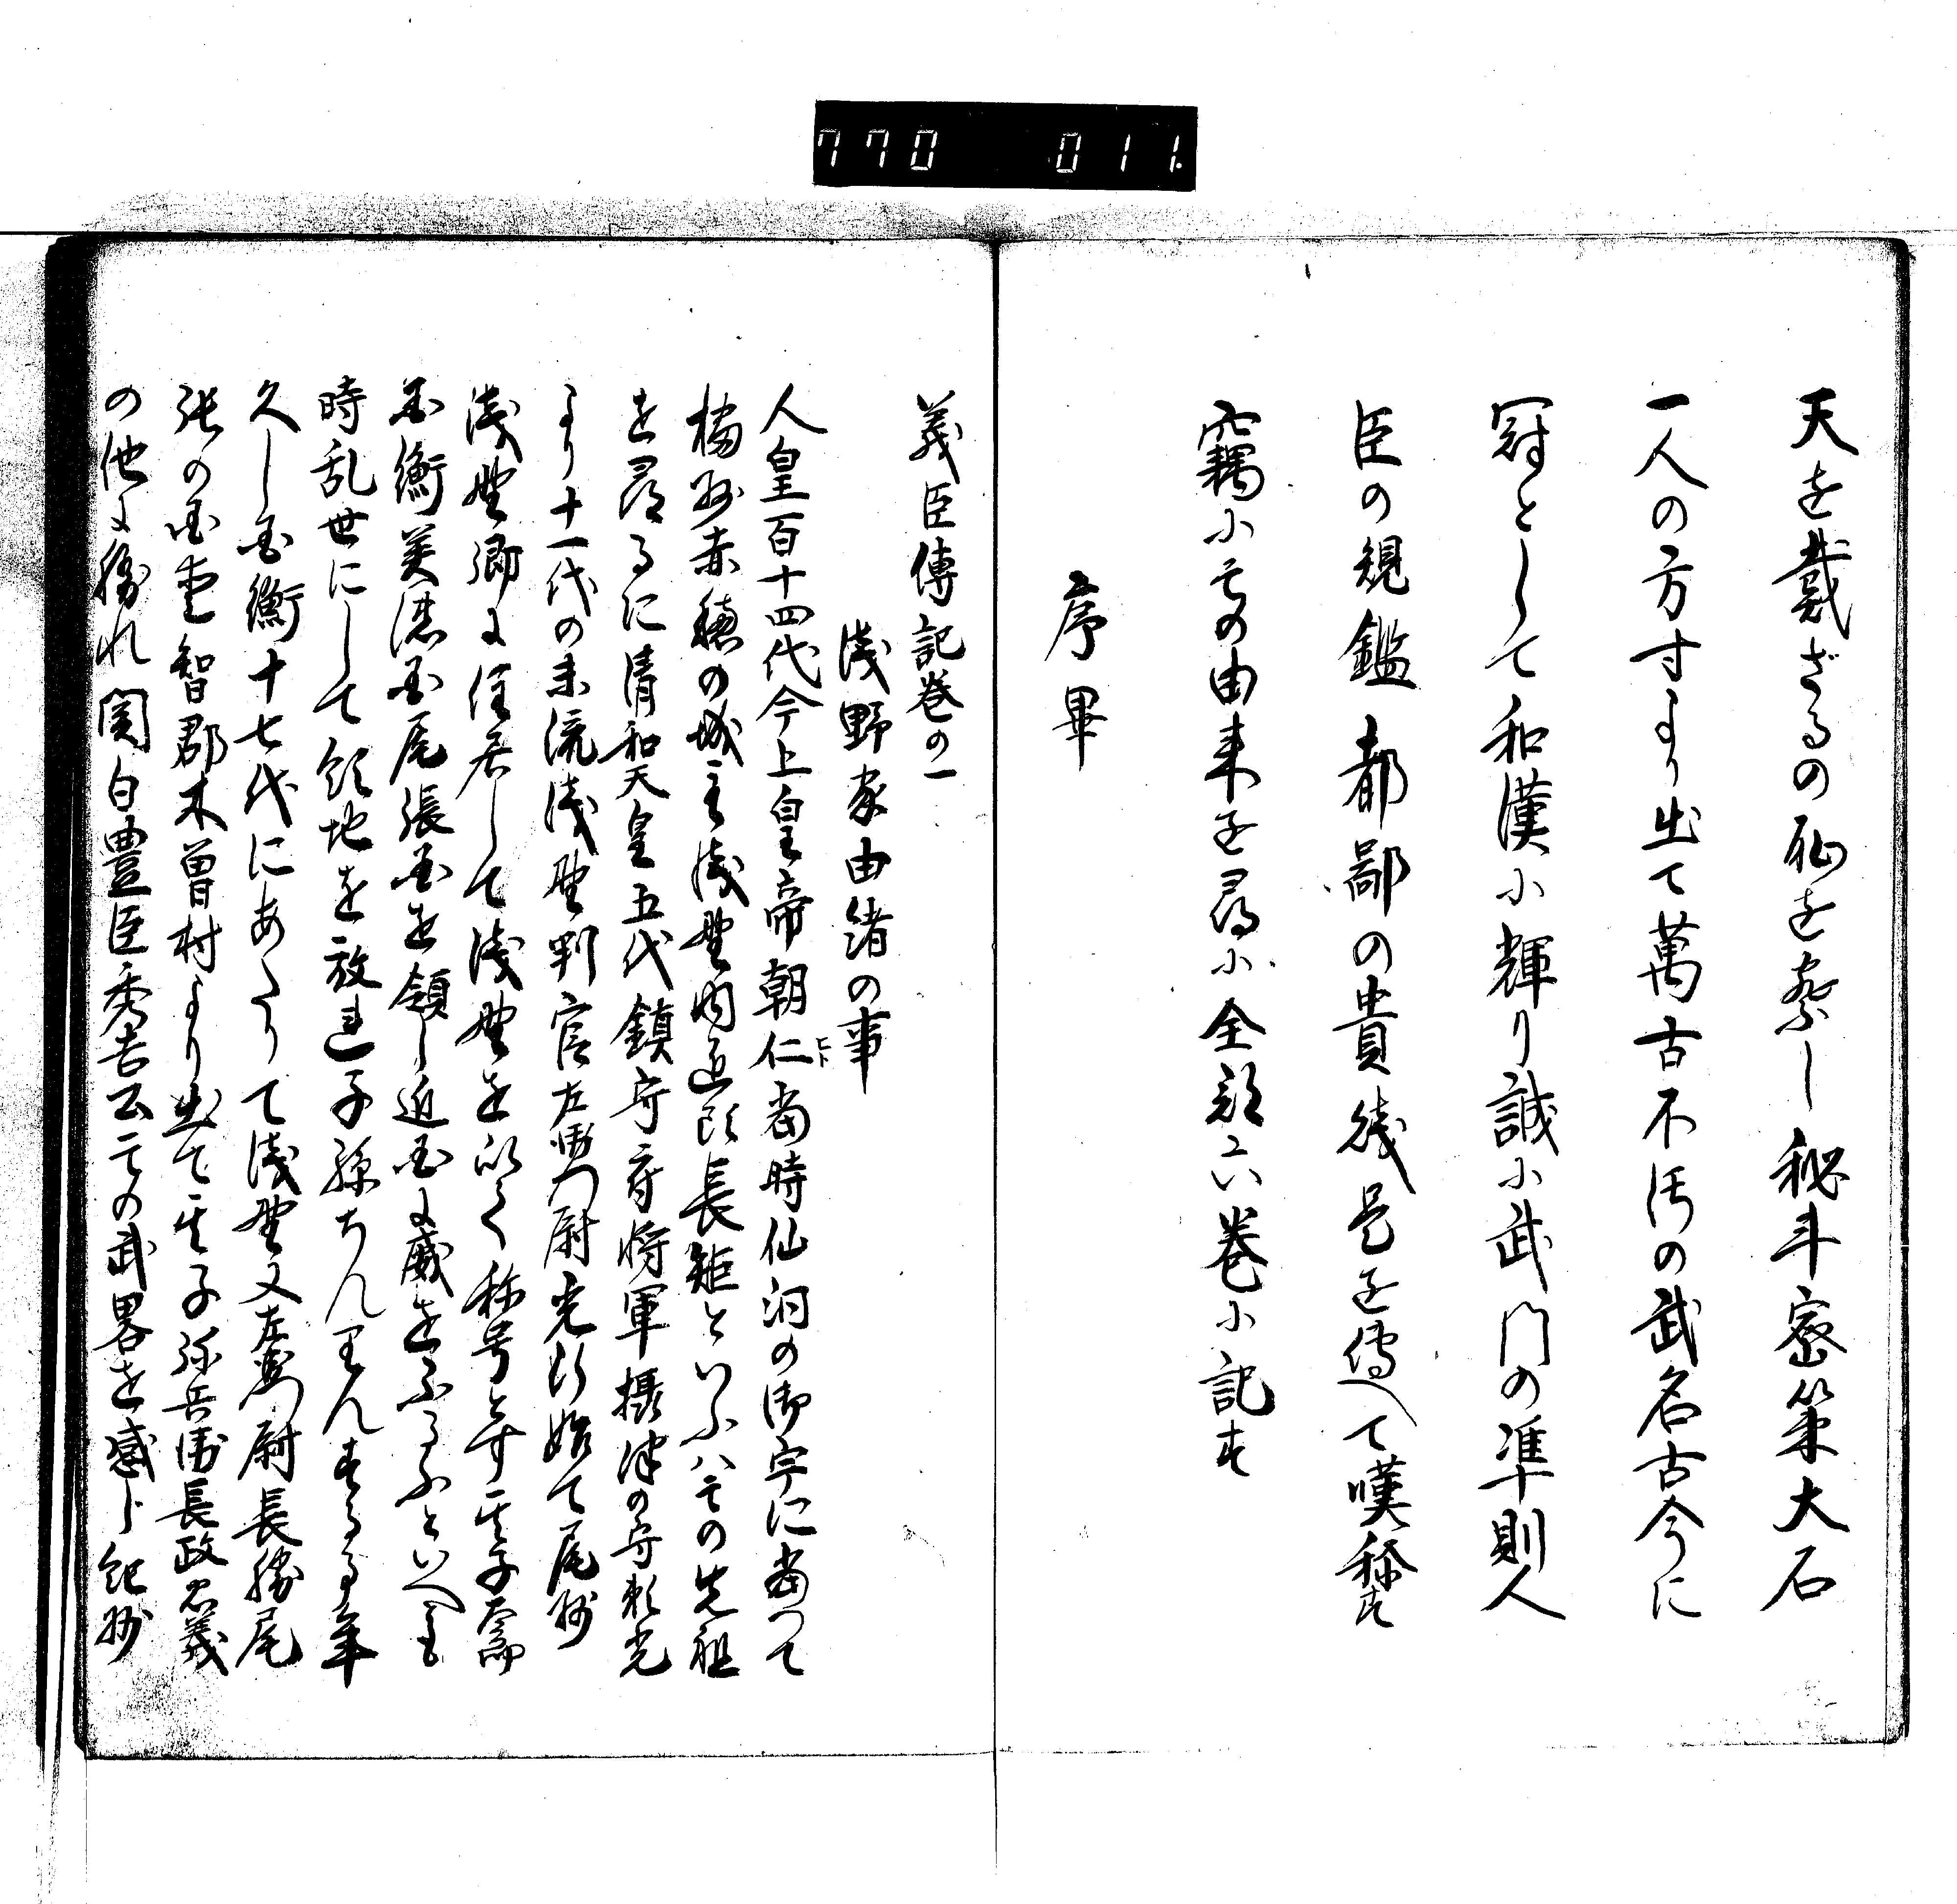 770 011
天を戴ざるの仙を察し秘斗密策大石
一人の方寸より出て萬古不汚の武名古今に
冠として和漢小輝り誠小武門の準則人
臣の規鑑都鄙の貴賎是を傳へて嘆称せ
竊小其の由来を尋小全部六巻小記す
序畢
義臣傳記巻の一
浅野家由緒の事
人皇百十四代今上皇帝朝仁當時仙洞の御宇に當つて
ヒト
播州赤穂の城主浅野内匠頭長矩といふハ其の先祖
を尋るに清和天皇五代鎮守府将軍摂津の守頼光
より十一代の末流浅野判官左衛門尉光行始て尾州
浅野郷に住居して浅野を以て称号とす其子斎
国衡美濃国尾張国を領し近国に威をふるふといへとも
時乱世にして領地を放連子孫ちんりんする事年
久し国衡十七代にあたりて浅野又左衛門尉長勝尾
張の国愛智郡木曽村より出て其子弥兵衛長政忠義
の他に勝れ関白豊臣秀吉公其の武畧を感し紀州